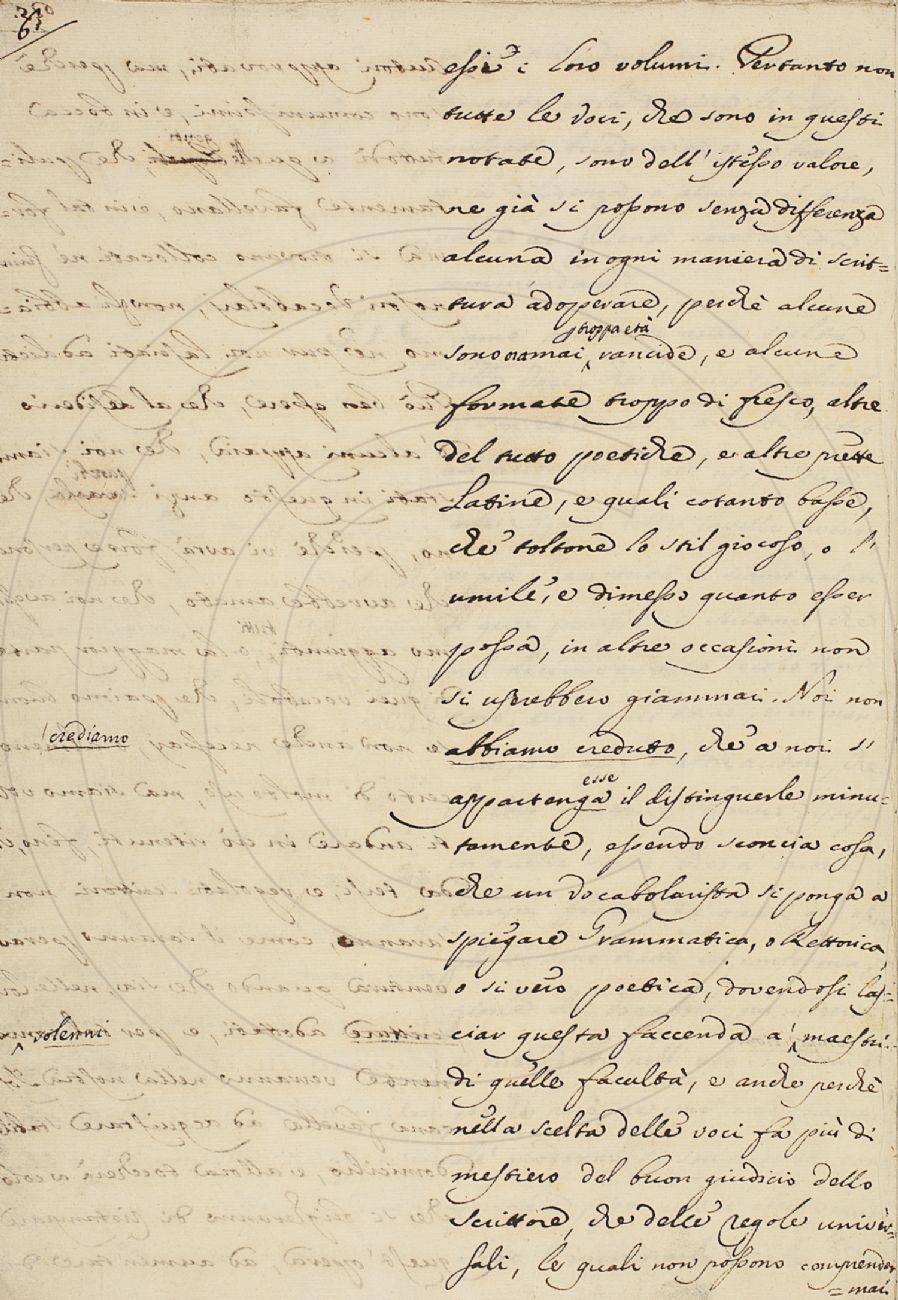 essi i loro volumi. Pertanto non
tutte le voci, che sono in questi
notate, sono dell'istesso valore,
ne già si possono senza differenza
alcuna in ogni maniera di scrit=
tura adoperare, perchè alcune
troppa età
sono oramai rancide, e alcune
formate troppo di fresco, altre
del tutto poetiche, e altre prette
Latine, e quali cotanto basse,
che toltone lo stil giocoso, o l'
umile, e dimesso quanto esser
possa, in altre occasioni non
si userebbero giammai. Noi non
crediamo
abbiamo creduto, che a noi s'
esse
appartenga il distinguerle minu=
tamente, essendo sconcia cosa,
che un Vocabolarista si ponga a
spiegare Grammatica, o Rettorica,
o si vero poetica, dovendosi las=
volentieri
ciar questa faccenda a' maestri
di quelle facultà, e anche perchè
nella scelta delle voci fa più di
mestiero del buon giudicio dello
scrittore, che delle regole univer=
sali, le quali non possono comprender
=mai